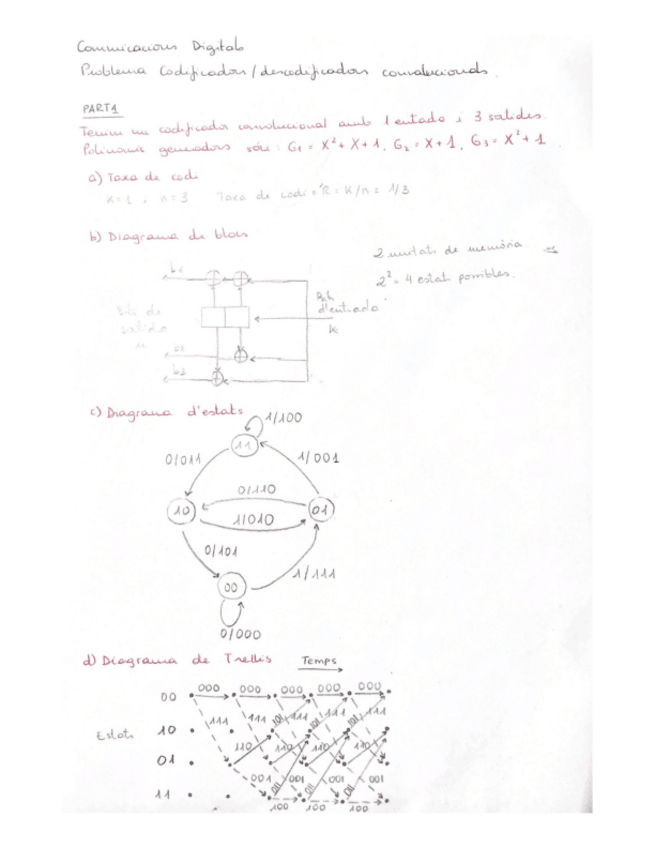 Comunicacions Digitals
Problema Codificadors/descodificadors convolucionals.
PART 1
Tenim un codificador convolucional amb 1 entrada i 3 sortides.
Polinomis generadors són: G1 = X²+X+1, G2 = X+1, G3 = X²+1
a) Taxa de codi
K=1, n=3 Taxa de codi = R = K/n = 1/3
b) Diagrama de blocs
2 unitats de memòria
2² = 4 estats possibles.
Bits de sortida n
Bits d'entrada
K
c) Diagrama d'estats
1/100
11
0/011
1/001
0/110
10
01
1/010
0/101
1/111
00
0/000
d) Diagrama de Trellis Temps
00 000 000 000 000 000
111 111 101 111 101 111 101 111
Estats 10
110 110 110 110
01
001 001 001 001
011 011 011
11
100 100 100